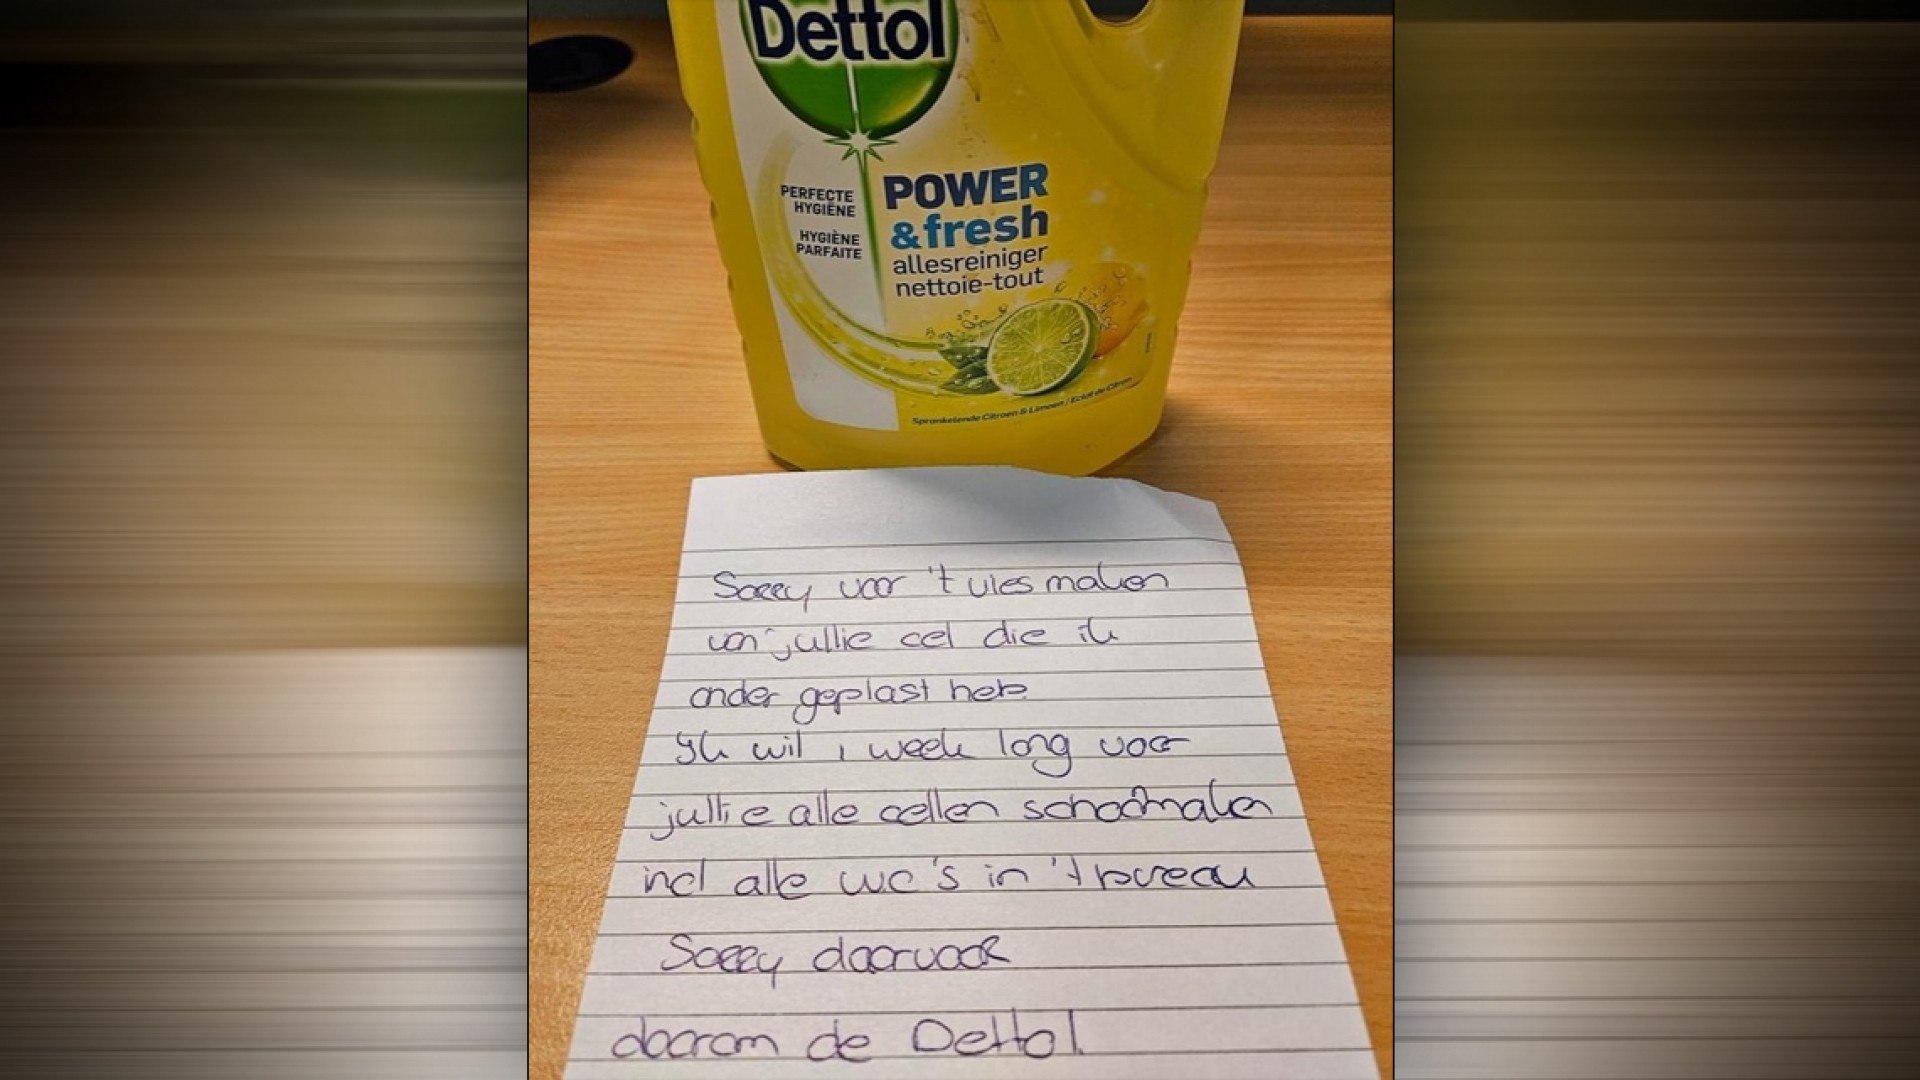 Dettol
PERFECTE
HYGIËNE
HYGIÈNE
PARFAITE
POWER
&fresh
allesreiniger
nettoie-tout
Sprankelende Citroen & Limoen / Eclat de Citron
Sorry voor 't vies maken
van jullie cel die ik
onder geplast heb.
Ik wil 1 week lang voor
jullie alle cellen schoofmaken
incl alle wc's in 't bureau
Sorry daarvoor
daarom de Dettol.